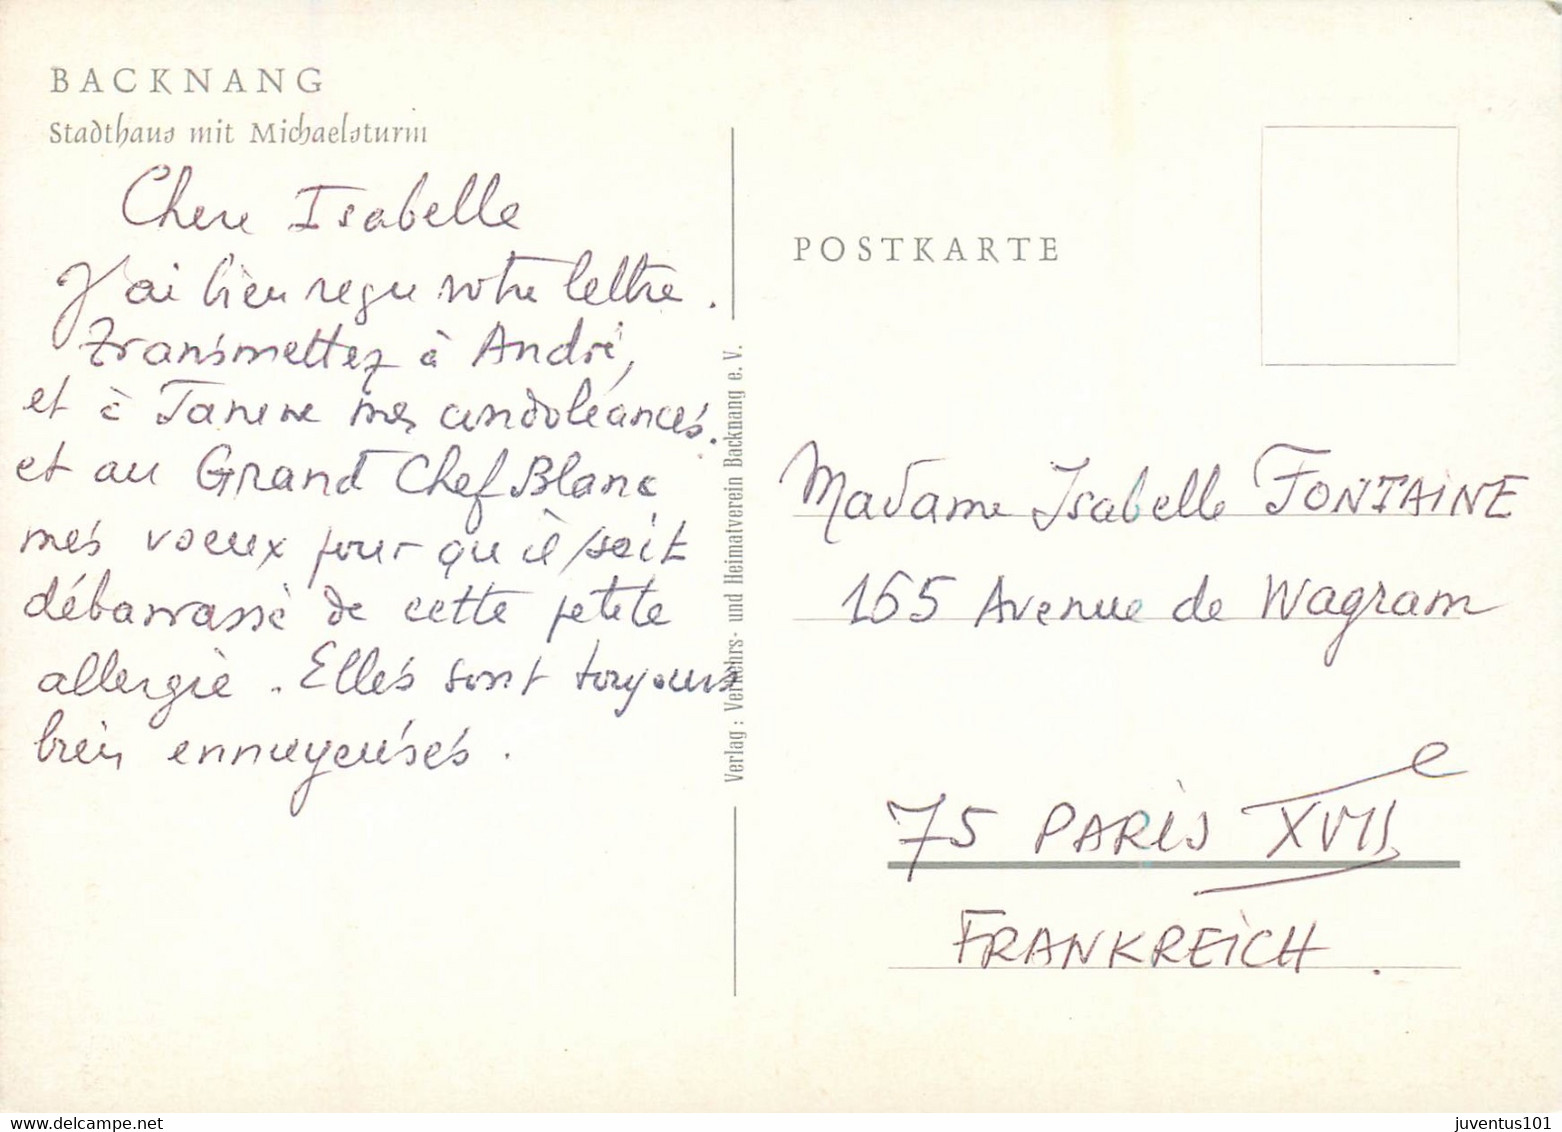 BACKNANG
Stadthaus mit Michaelsturm
Chere Isabelle
J'ai bien reçu votre lettre.
Transmettez à André,
et à Janine mes condoléances.
et au Grand Chef Blanc
mes voeux pour qu'il soit
débarrassé de cette petite
allergie. Elles sont toujours
bien ennuyeuses.
Verlag: Verkehrs- und Heimatverein Backnang e. V.
POSTKARTE
Madame Isabelle FONTAINE
165 Avenue de Wagram
75 PARIS XVIIe
FRANKREICH.
juventus101